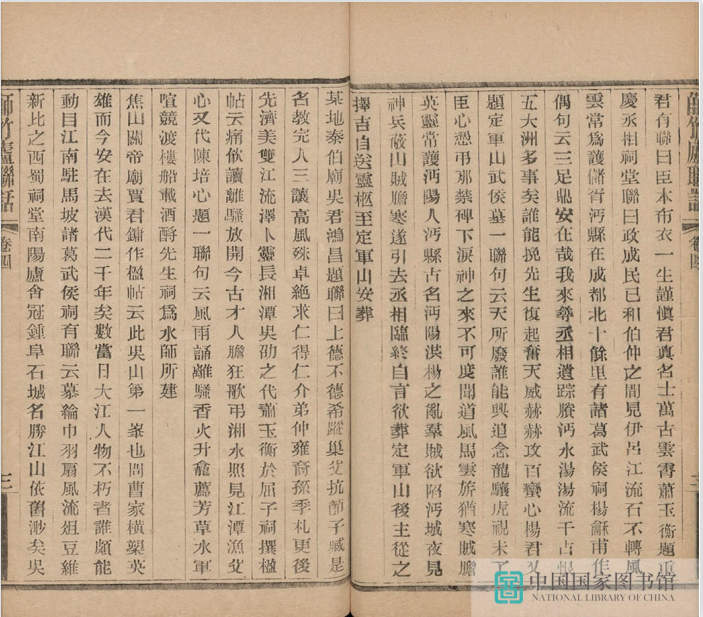 君有聯曰臣本布衣一生謹慎君真名士萬古雲霄蕭玉衡題重
慶丞相祠堂聯曰政成民已和伯仲之間見伊呂江流石不轉風
雲常爲護儲胥沔縣在成都北十餘里有諸葛武侯祠楊龢甫作
偶句云三足鼎安在哉我來尋丞相遺踪賸沔水湯湯流千古恨
五大洲多事矣誰能挽先生復起奮天威赫赫攻百蠻心楊君又
題定軍山武侯墓一聯句云天所廢誰能興追念龍驤虎視未了
臣心恐弔那禁碑下淚神之來不可度聞道風馬雲旂猶寒賊膽
英靈常護沔陽人沔縣古名沔陽洪楊之亂羣賊欲陷沔城夜見
神兵蔽山賊膽寒遂引去丞相臨終自言欲葬定軍山後主從之
擇吉自送靈柩至定軍山安葬
某地泰伯廟吳君鴻昌題聯曰上德不德希蹤巢父抗節子臧是
名教完人三讓高風殊卓絶求仁得仁介弟仲雍裔孫季札更後
先濟美雙江流澤卜靈長湘潭吳劭之代蕭玉衡於屈子祠撰楹
帖云痛飲讀離騷放開今古才人膽狂歌弔湘水照見江潭漁父
心又代陳培心題一聯句云風雨誦離騷香火升龕薦芳草水軍
喧競渡樓船載酒酹先生祠爲水師所建
焦山關帝廟賈君鏞作楹帖云此吳山第一峯也問曹家橫槊英
雄而今安在去漢代二千年矣數當日大江人物不朽者誰頗能
動目江南駐馬坡諸葛武侯祠有聯云慕綸巾羽扇風流俎豆維
新比之西蜀祠堂南陽廬舍冠鍾阜石城名勝江山依舊渺矣吳
師竹廬聯話
卷四
三
中国国家图书馆
NATIONAL LIBRARY OF CHINA